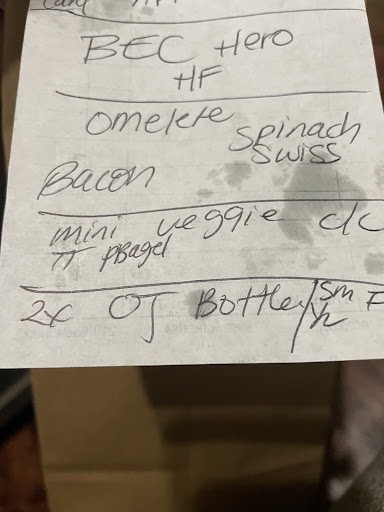 BEC Hero
HF
Omelete
Spinach
Swiss
Bacon
mini veggie c/c
TT PBagel
2x OJ Bottle/sm